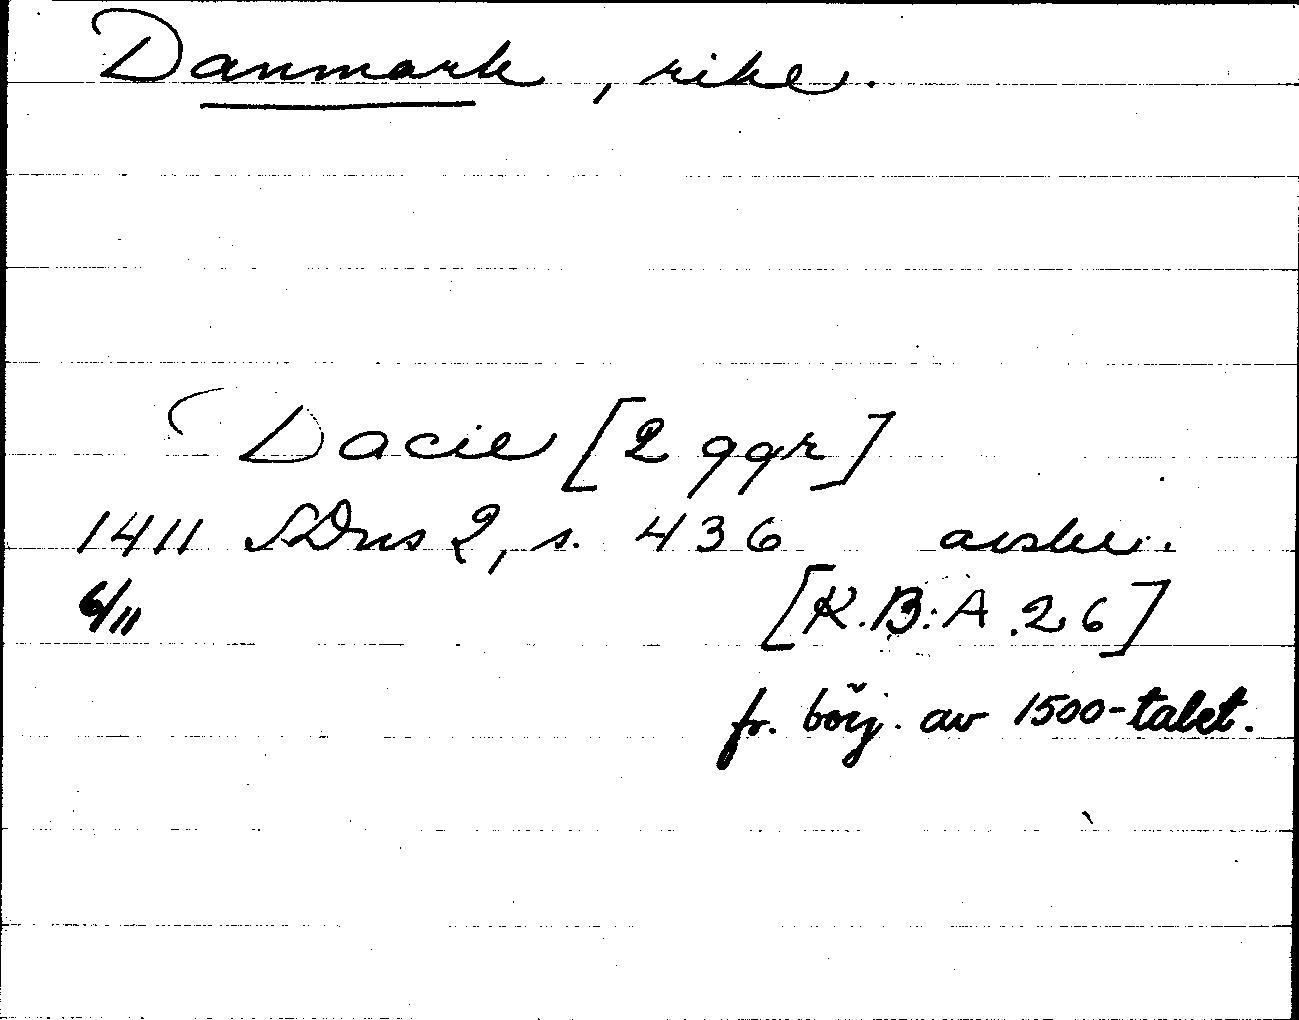 Danmark, rike.
Dacie [2 ggr]
1411 SDns 2, s. 436 avskr.
6/11 [K.B:A.26]
fr. börj. av 1500-talet.